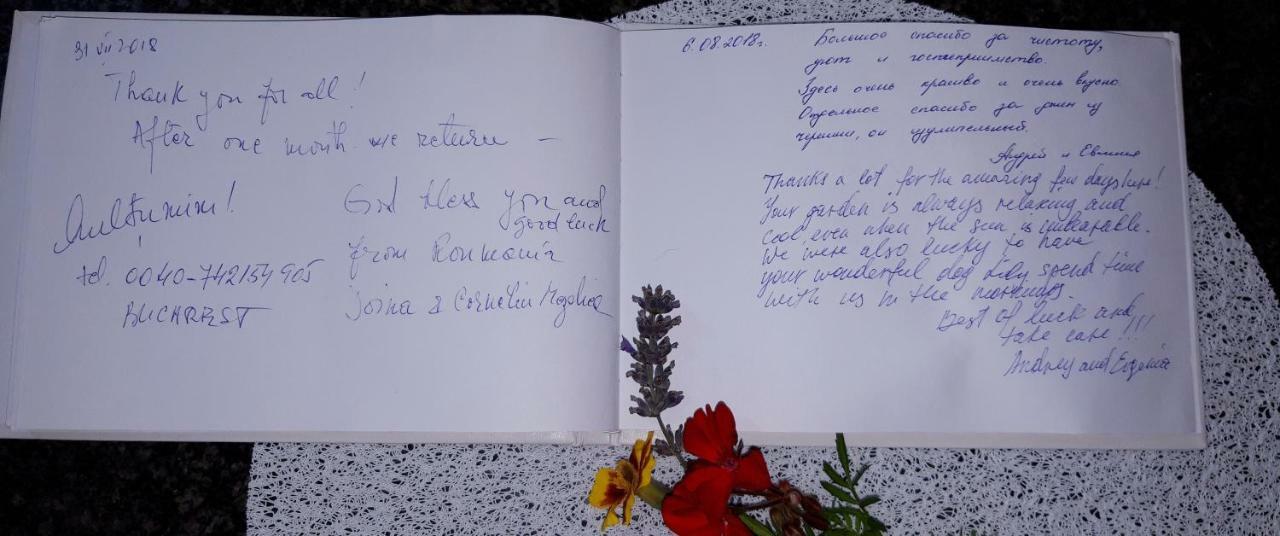 31 VII 2018
Thank you for all!
After one month we return –
Multumim!
tel. 0040-742154905
BUCHAREST
God bless you and
good luck
from Roumania
Joina & Corneliu
6.08.2018г.
Большое спасибо за чистоту,
уют и гостеприимство.
Здесь очень красиво и очень вкусно.
Отдельное спасибо за джин из
черешни, он удивительный.
Андрей и Евгения
Thanks a lot for the amazing few days here!
Your garden is always relaxing and
cool, even when the sun is unbearable.
We were also lucky to have
your wonderful dog spend time
with us in the mornings.
Best of luck and
take care!!!
Andrey and Evgenia